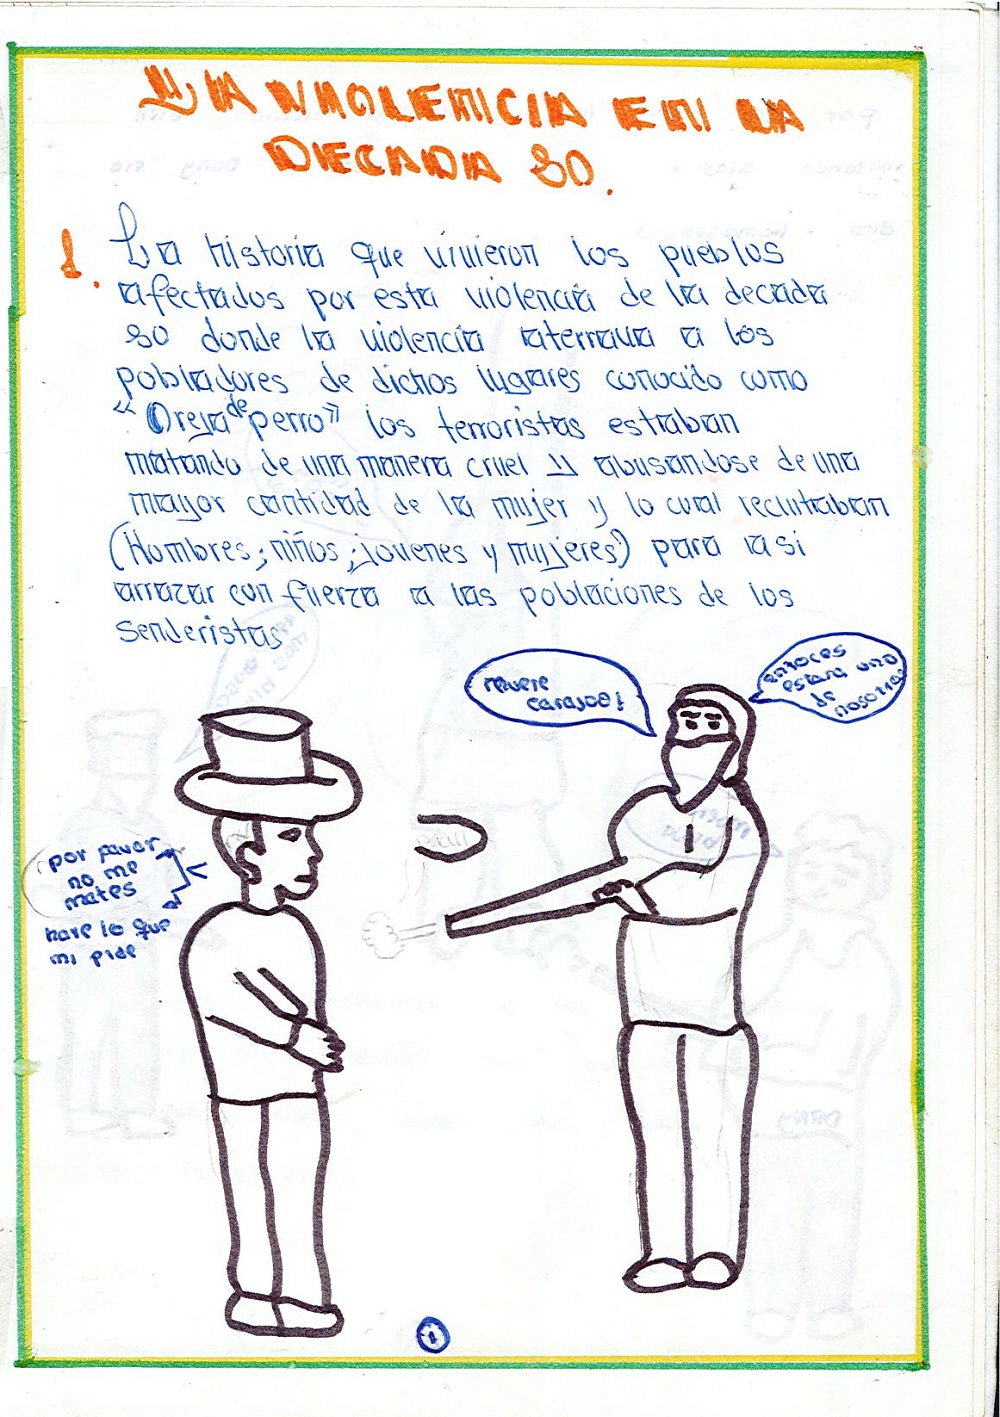 LA VIOLENCIA EN LA
DECADA 80.
1. La historia que vivieron los pueblos
afectados por esta violencia de la decada
80 donde la violencia aterrava a los
pobladores de dichos lugares conocido como
"Oreja de perro" los terroristas estaban
matando de una manera cruel y abusandose de una
mayor cantidad de la mujer y lo cual reclutaban
(Hombres; niños; jovenes y mujeres) para asi
arrazar con fuerza a las poblaciones de los
senderistas
muere
carajoo!
entoces
estara uno
de
nosotras
por favor
no me
mates
hare lo que
mi pide
1